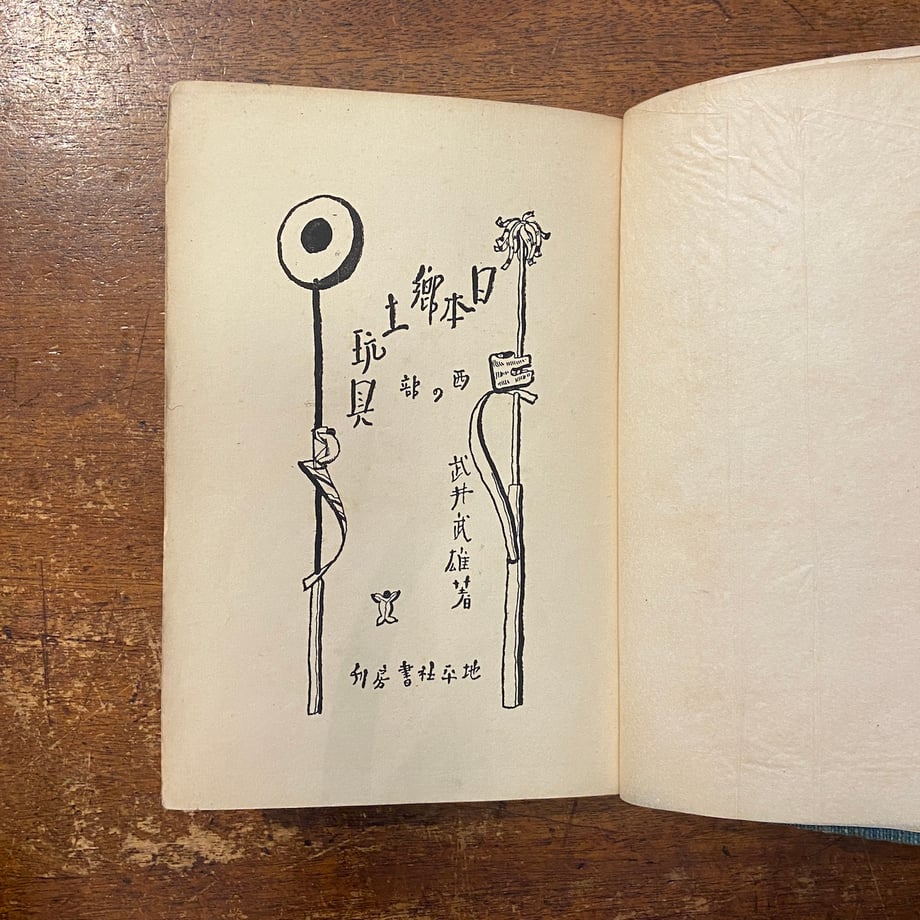 日本郷土玩具
西の部
武井武雄著
地平社書房刊